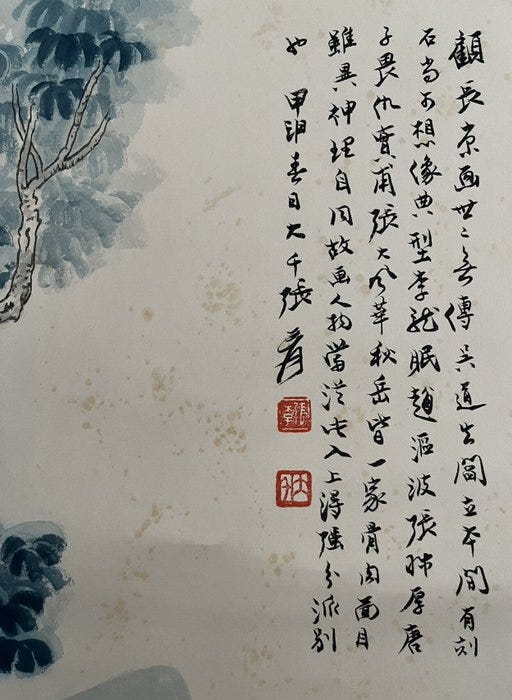 顧長康画世已無傳吳道生閻立本間有刻
石尚可想像典型李龍眠趙漚波張師厚唐
子畏仇實甫張大風華秋岳皆一家骨肉面目
雖異神理自同故画人物當従此入上得強分派別
也 甲申春日大千張爰
張爰
大千